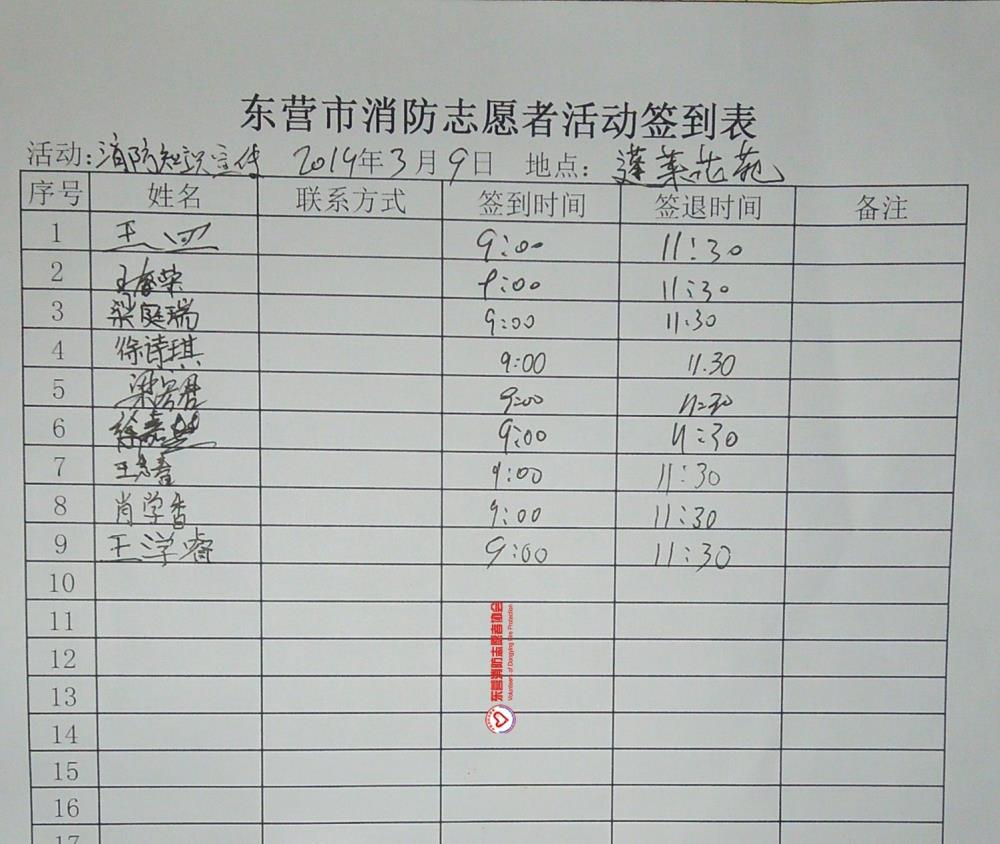 东营市消防志愿者活动签到表
活动:消防知识宣传 2019年3月9日 地点:蓬莱花苑
序号 姓名 联系方式 签到时间 签退时间 备注
1 王 四 9:00 11:30
2 王春荣 9:00 11:30
3 梁庭瑞 9:00 11:30
4 徐诗琪 9:00 11.30
5 9:00 11:30
6 徐嘉 9:00 11:30
7 9:00 11:30
8 肖学香 9:00 11:30
9 王学睿 9:00 11:30
10
11
12
13
14
15
16
17
东营消防志愿者协会
Volunteers of Dongying Fire Protection